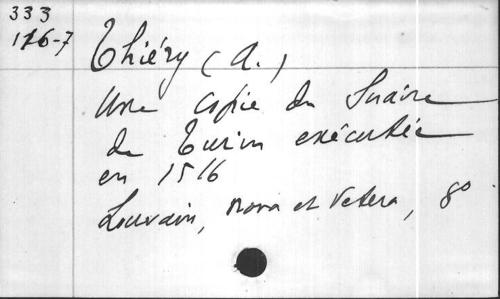 333
126-7
Thiéry (A.)
Une copie du Suaire
de Turin exécutée
en 1516
Louvain, Nova et Vetera, 8°